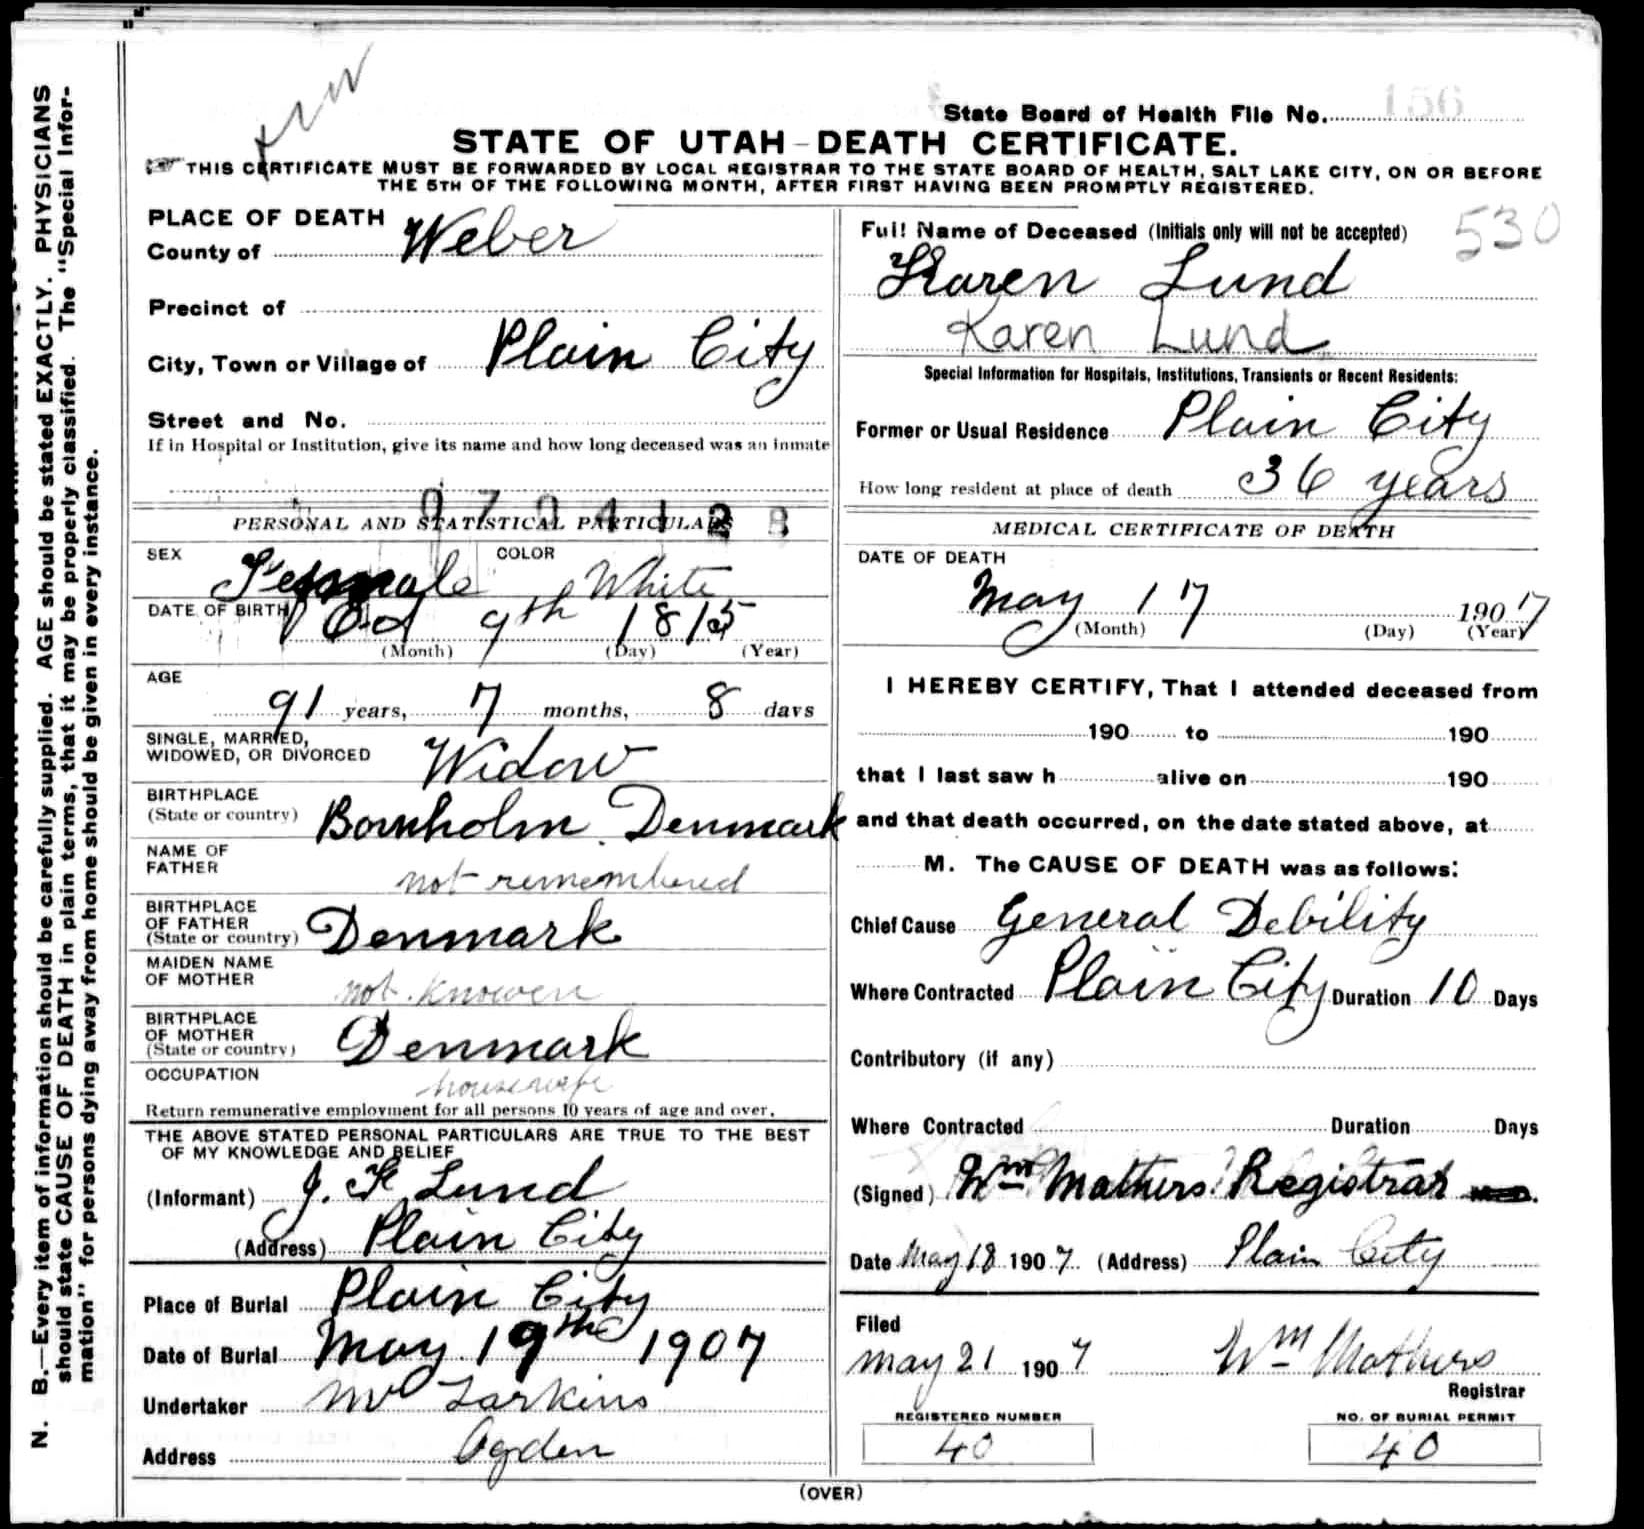 State Board of Health File No. 156
STATE OF UTAH-DEATH CERTIFICATE.
THIS CERTIFICATE MUST BE FORWARDED BY LOCAL REGISTRAR TO THE STATE BOARD OF HEALTH, SALT LAKE CITY, ON OR BEFORE
THE 5TH OF THE FOLLOWING MONTH, AFTER FIRST HAVING BEEN PROMPTLY REGISTERED.
N. B.—Every item of information should be carefully supplied. AGE should be stated EXACTLY. PHYSICIANS
should state CAUSE OF DEATH in plain terms, that it may be properly classified. The "Special Infor-
mation" for persons dying away from home should be given in every instance.
PLACE OF DEATH
County of Weber
Precinct of
City, Town or Village of Plain City
Street and No.
If in Hospital or Institution, give its name and how long deceased was an inmate
PERSONAL AND STATISTICAL PARTICULARS
SEX Female COLOR White
DATE OF BIRTH Oct 9th 1815
(Month) (Day) (Year)
AGE
91 years, 7 months, 8 days
SINGLE, MARRIED,
WIDOWED, OR DIVORCED Widow
BIRTHPLACE
(State or country) Bornholm Denmark
NAME OF
FATHER not remembered
BIRTHPLACE
OF FATHER
(State or country) Denmark
MAIDEN NAME
OF MOTHER not knowen
BIRTHPLACE
OF MOTHER
(State or country) Denmark
OCCUPATION housewife
Return remunerative employment for all persons 10 years of age and over.
THE ABOVE STATED PERSONAL PARTICULARS ARE TRUE TO THE BEST
OF MY KNOWLEDGE AND BELIEF
(Informant) J. F. Lund
(Address) Plain City
Place of Burial Plain City
Date of Burial May 19th 1907
Undertaker Mr Larkins
Address Ogden
Full Name of Deceased (Initials only will not be accepted) 530
Karen Lund
Karen Lund
Special Information for Hospitals, Institutions, Transients or Recent Residents:
Former or Usual Residence Plain City
How long resident at place of death 36 years
MEDICAL CERTIFICATE OF DEATH
DATE OF DEATH
May 17 1907
(Month) (Day) (Year)
I HEREBY CERTIFY, That I attended deceased from
190 to 190
that I last saw h alive on 190
and that death occurred, on the date stated above, at
M. The CAUSE OF DEATH was as follows:
Chief Cause General Debility
Where Contracted Plain City Duration 10 Days
Contributory (if any)
Where Contracted Duration Days
(Signed) Wm Mathers Registrar
Date May 18 1907. (Address) Plain City
Filed
May 21 1907 Wm Mathers
Registrar
REGISTERED NUMBER
40
NO. OF BURIAL PERMIT
40
(OVER)